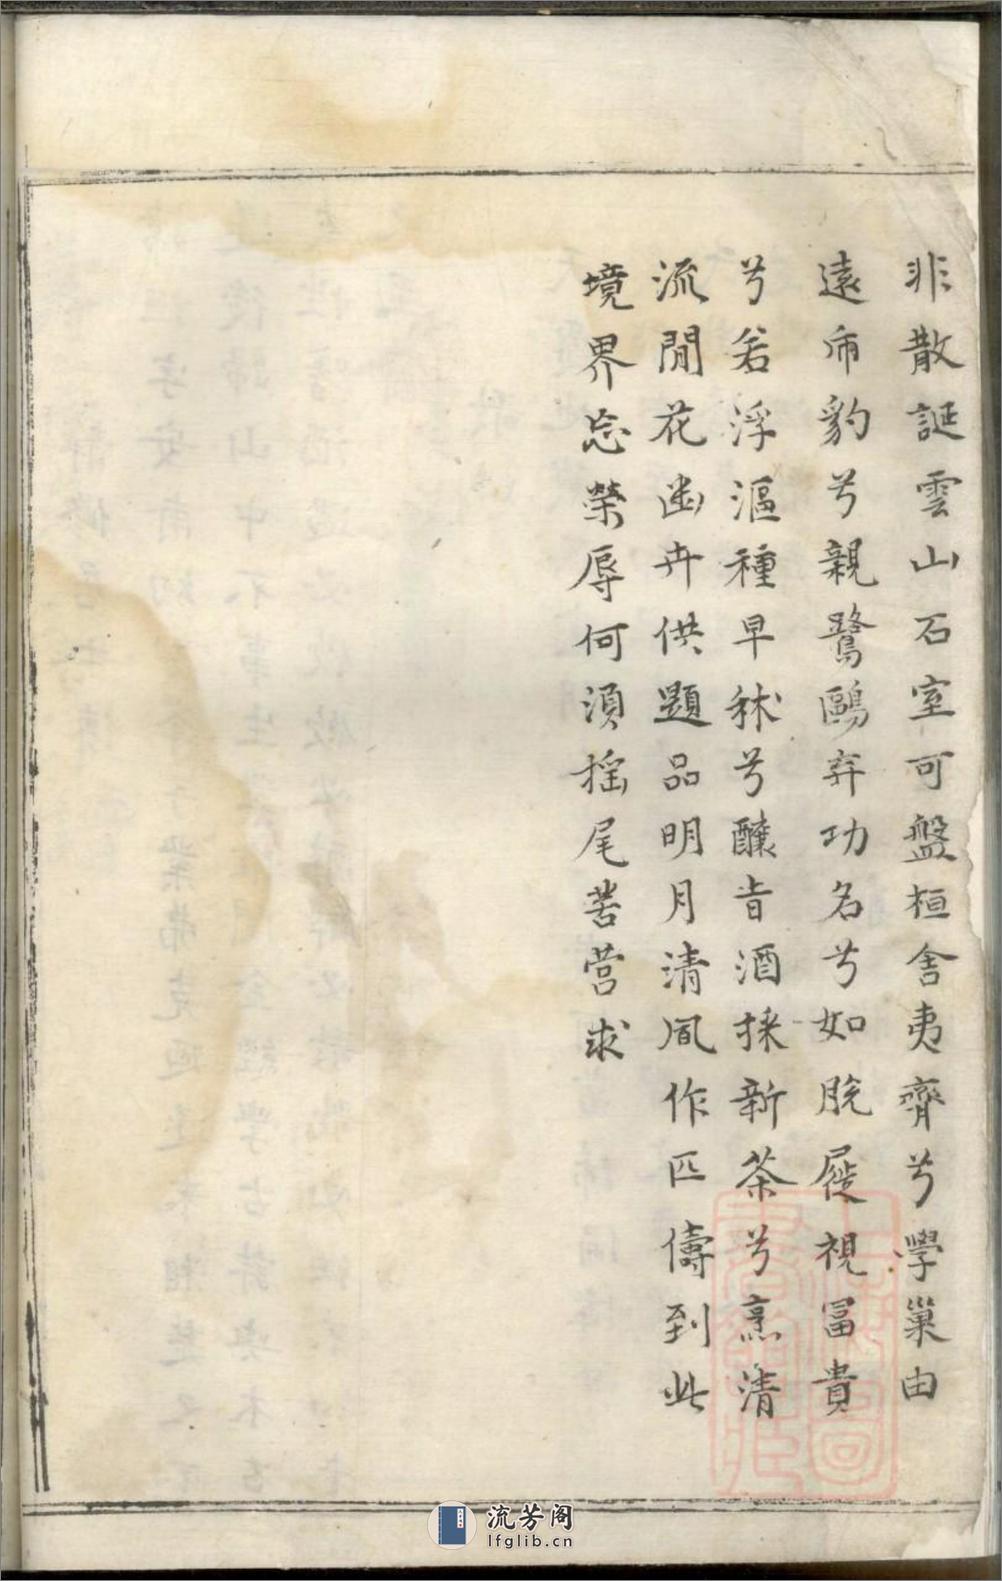 非散誕雲山石室可盤桓舍夷齊兮學巢由
遠甭豹兮親鷺鷗弃功名兮如脫屣視冨貴
兮若浮漚種早秫兮釀旨酒採新茶兮烹清
流閒花幽卉供題品明月清風作匹儔到此
境界忘榮辱何須摇尾苦营求
流芳阁
lfglib.cn